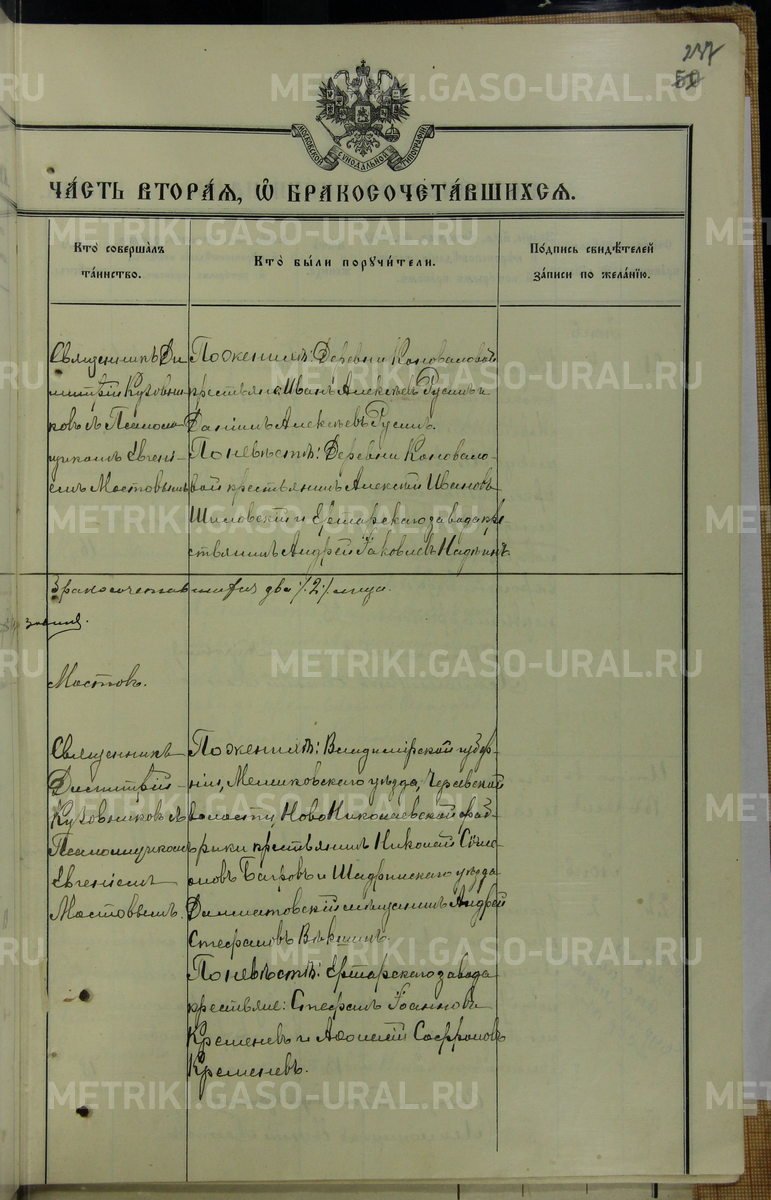 237
МОСКОВСКОЙ СѴНОДАЛЬНОЙ ТИПОГРАФІИ
ЧА́СТЬ ВТОРАѦ, Ѡ҆ БРАКОСОЧЕТА́ВШИХСѦ.
Кто̀ совершалъ та́инство.
Кто̀ бы́ли порꙋчи́тели.
По́дпись свидѣ́телей за́писи по жела́нїю.
Священникъ Ди-
митрій Кузовни-
ковъ съ Псаломщ-
щикомъ Евгені-
емъ Мостовымъ
По женихѣ: Деревни Коноваловой
крестьяне: Иванъ Алексѣевъ Русинъ и
Даніилъ Алексѣевъ Русинъ.
По невѣстѣ: Деревни Коновало-
вой крестьянинъ Алексѣй Ивановъ
Шиловскій и Ертарскаго завода кре-
стьянинъ Андрей Іаковлевъ
бракосочетавшихся два /2/ лица.
Мостов.
Священникъ
Димитрій
Кузовниковъ съ
Псаломщикомъ
Евгеніемъ
Мостовымъ.
По женихѣ: Владимірской губер-
ніи, Меленковскаго уѣзда,
волости, Ново Николаевской фаб-
рики крестьянинъ Николай Симе-
оновъ Багровъ и Шадринскаго уѣзда
Далматовскій мѣщанинъ Андрей
Стефановъ Вѣкшинъ.
По невѣстѣ: Ертарскаго завода
крестьяне: Стефанъ Іоанновъ
Кременевъ и Софроновъ
Кременевъ.
METRIKI.GASO-URAL.RU